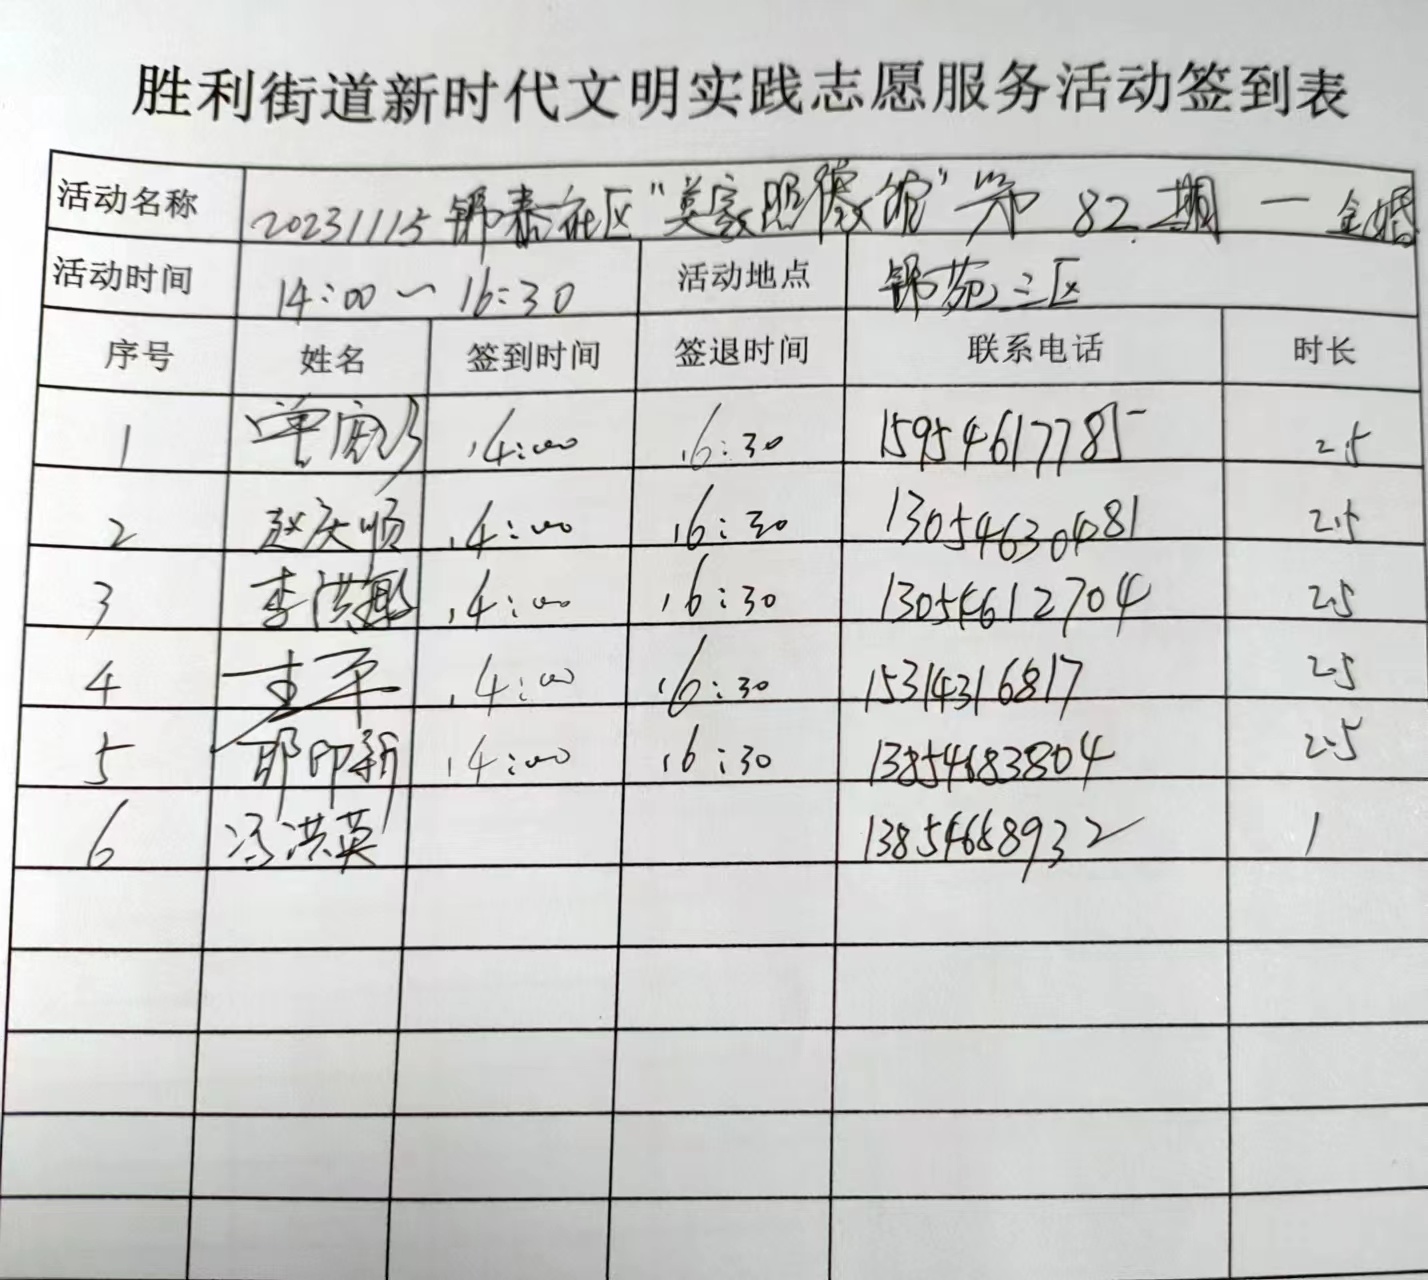 胜利街道新时代文明实践志愿服务活动签到表
活动名称 20231115 锦泰社区"莫家照像馆"第 82 期 一 金婚
活动时间 14:00 ~ 16:30 活动地点 锦苑三区
序号 姓名 签到时间 签退时间 联系电话 时长
1 14:00 16:30 15954617785 2.5
2 赵庆顺 14:00 16:30 13054630481 2.5
3 李洪 14:00 16:30 13054612704 2.5
4 王平 14:00 16:30 15314316817 2.5
5 印新 14:00 16:30 13854683804 2.5
6 冯洪英 13854668932 1